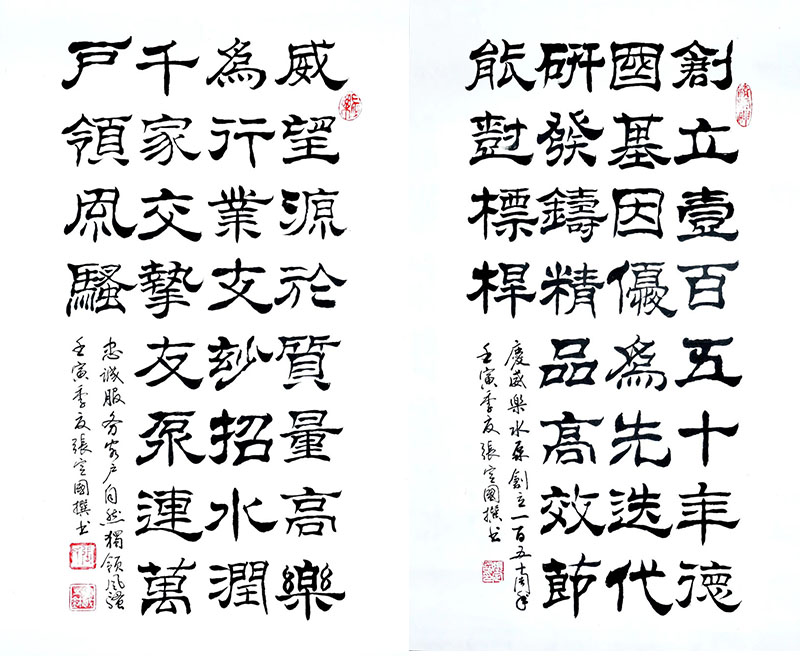 創立壹百五十年德
國基因優為先迭代
研發鑄精品高效節
能對標桿
慶威樂水泵創立一百五十周年
壬寅季夏張國撰书
威望源於質量高樂
為行業支妙招水潤
千家交摯友泵連萬
戶領風騷
忠誠服务客户自然獨領風騷
壬寅季夏張國撰书